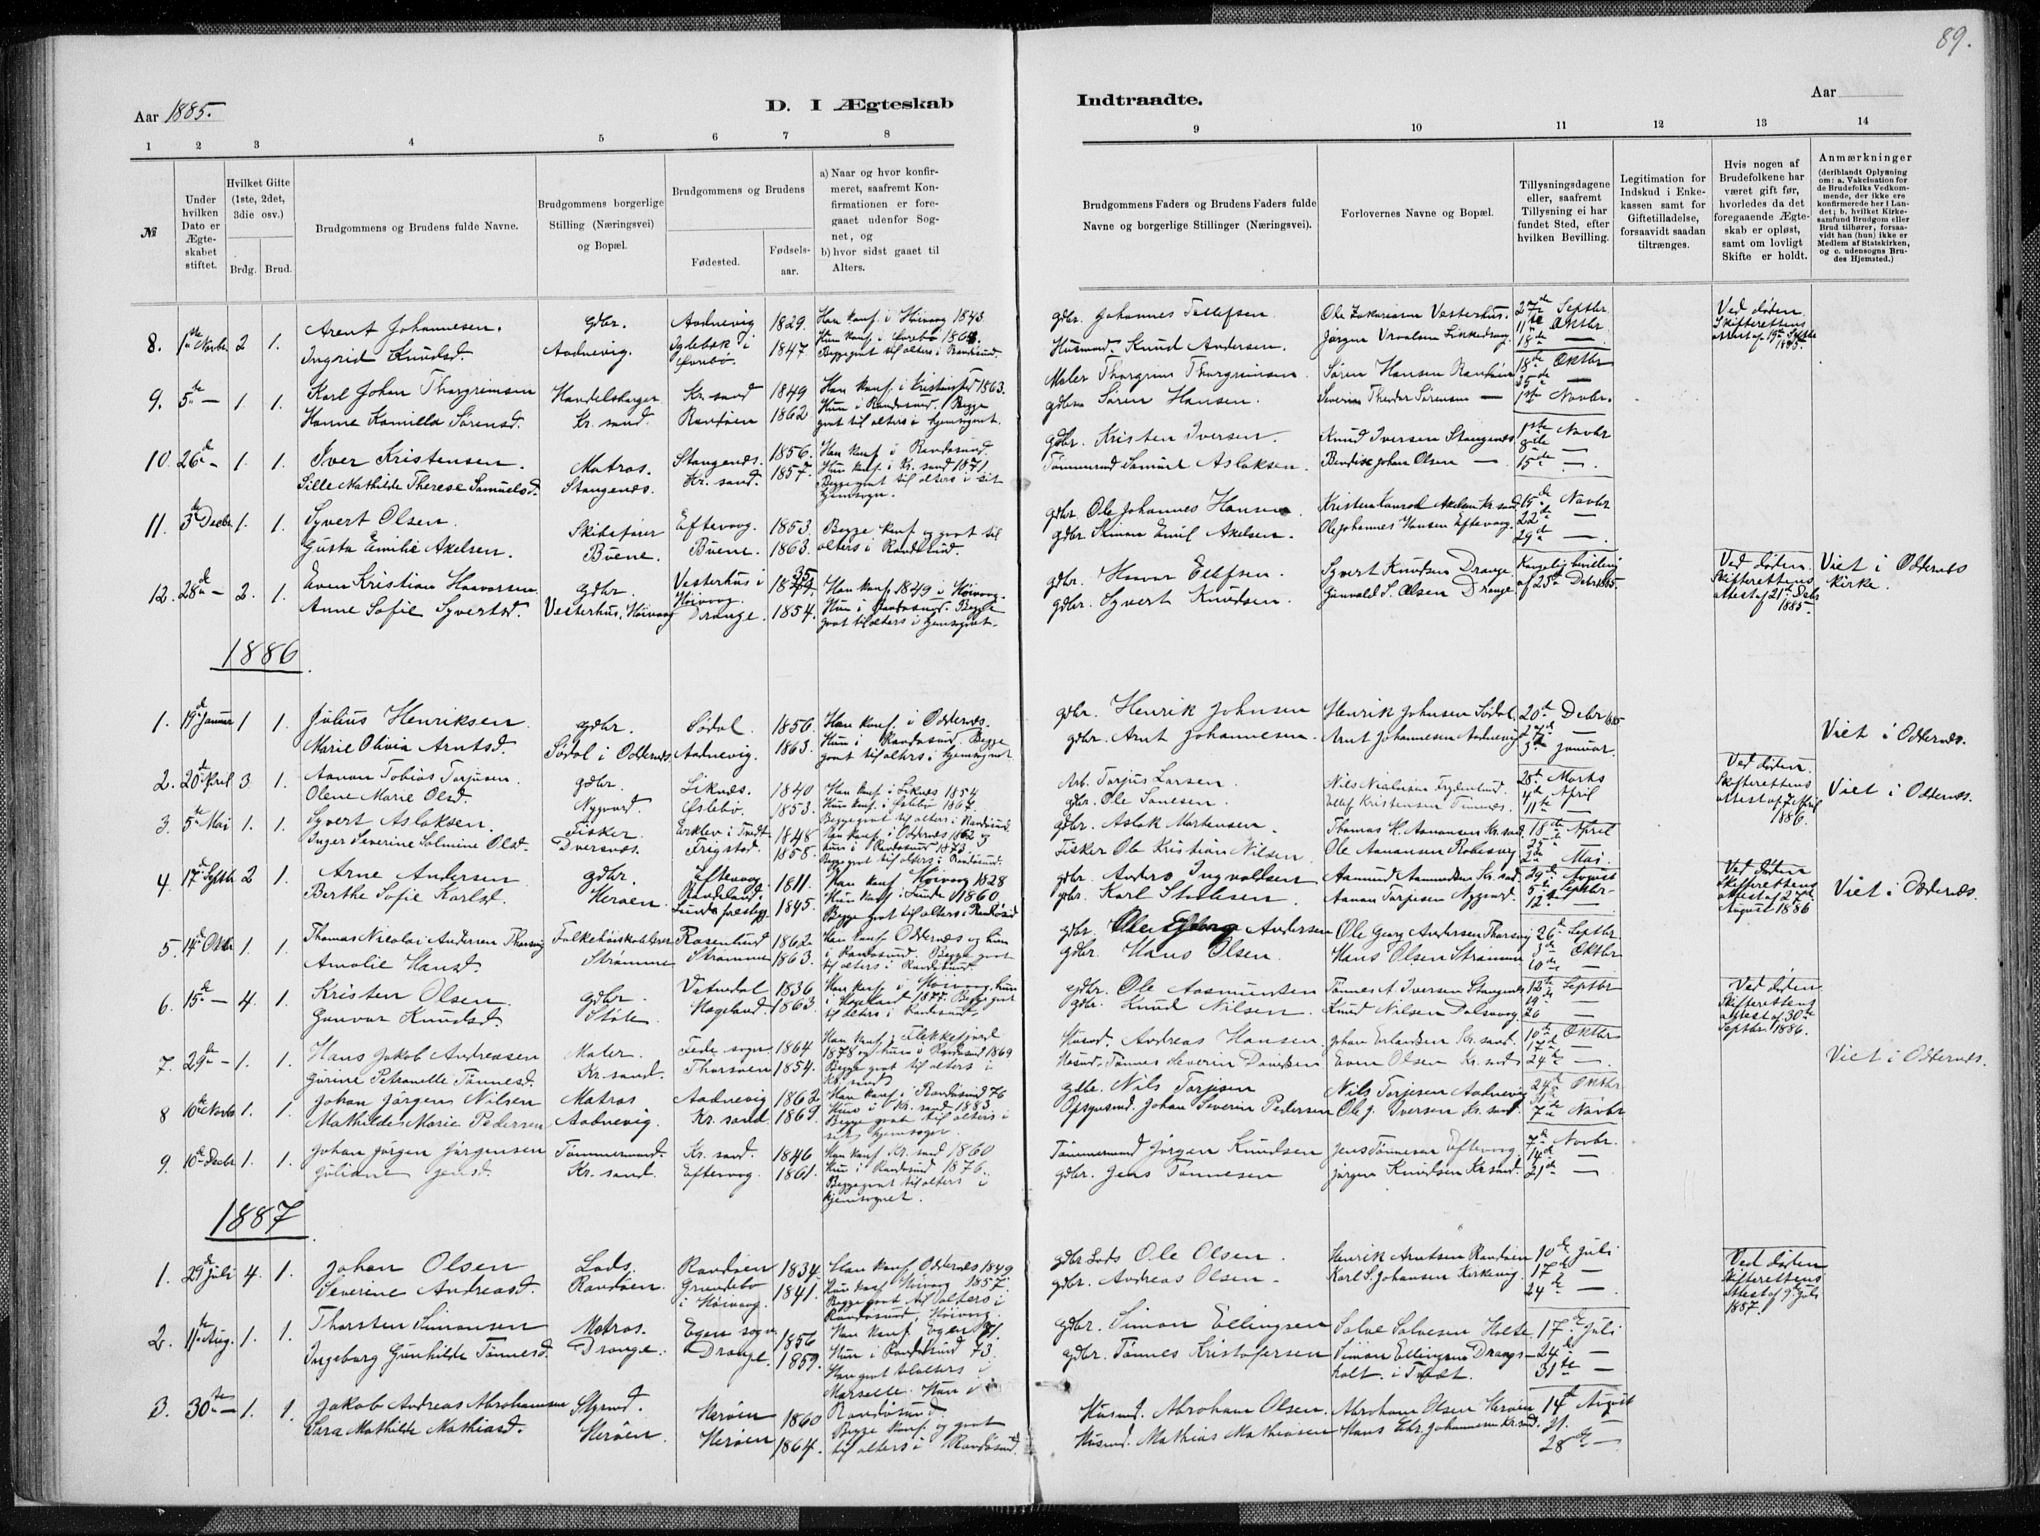 89.
Aar 1885.
D. I Ægteskab
Indtraadte.
Aar
1 2 3 4 5 6 7 8
9 10 11 12 13 14
№
Under hvilken Dato er Ægteskabet stiftet.
Hvilket Gifte (1ste, 2det, 3die osv.)
Brdg. Brud.
Brudgommens og Brudens fulde Navne.
Brudgommens borgerlige Stilling (Næringsvei) og Bopæl.
Brudgommens og Brudens
Fødested.
Fødselsaar.
a) Naar og hvor konfirmeret, saafremt Konfirmationen er foregaaet udenfor Sognet, og
b) hvor sidst gaaet til Alters.
Brudgommens Faders og Brudens Faders fulde Navne og borgerlige Stillinger (Næringsvei).
Forlovernes Navne og Bopæl.
Tillysningsdagene eller, saafremt Tillysning ei har fundet Sted, efter hvilken Bevilling.
Legitimation for Indskud i Enkekassen samt for Giftetilladelse, forsaavidt saadan tiltrænges.
Hvis nogen af Brudefolkene har været gift før, hvorledes da det foregaaende Ægteskab er opløst, samt om lovligt Skifte er holdt.
Anmærkninger (deriblandt Oplysning om: a. Vakcination for de Brudefolks Vedkommende, der ikke ere konfirmerede her i Landet; b. hvilket Kirkesamfund Brudgom eller Brud tilhører, forsaavidt han (hun) ikke er Medlem af Statskirken, og c. udensogns Brudes Hjemsted.)
8. 1ste Novbr 2 1. Arent Johannesen. Gdbr. Aadnevig 1829. Han konf. i Høivaag 1843. gdbr. Johannes Tellefsen Ole Zakariasen Vesterhus. 27de Septbr Ved døden.
Ingrid Knudsd. Aadnevig. Iglebæk i Øvrebø. 1847. Begge gaat til alters i Randøsund. Husmd. Knud Andersen. 11te Oktbr 18de — Skifterettens attest af 19de Septbr 1885.
9. 5te — 1. 1. Karl Johan Thorgrimsen Handelsborger Kr.sand 1849 Han konf. i Kristiansted 1863. Maler Thorgrim Thorgrimsen. Søren Hansen Randøen 18de Oktbr
Hanne Kamilla Sørensd. Kr. sand. Randøen 1862 Hun i Randøsund. Begge gaat til alters i hjemsognet. gdbr. Søren Hansen. Severin Theodor Sørensen — 25de — 1ste Novbr.
10. 26de — 1. 1. Iver Kristensen. Matros. Stangenes. 1856. Han konf. i Randøsund. gdbr. Kristen Iversen. Knud Iversen Stangenes 1ste Novbr
Sille Mathilde Therese Samuelsd. Stangenes. Kr. sand. 1857. Hun konf. i Kr. sand 1871. Begge gaat til alters i sit hjemsogn. Tømmermd Samuel Aslaksen. Bendix Johan Olsen — 8de — 15de —.
11. 3de Decbr. 1. 1. Syvert Olsen. Skibsfører Eftevaag. 1853. Begge konf. og gaat til gdbr. Ole Johannes Hansen Kristen Konrad Axelsen Kr.sand 15de Novbr
Gusta Emilie Axelsen. Buene. Buene. 1863. alters i Randøsund. gdbr. Simon Emil Axelsen. Ole Johannes Hansen Eftevaag. 22de — 29de —.
12. 28de — 2. 1. Even Kristian Haaversen gdbr. Vesterhus i Høivaag. 1835 Han konf. 1849 i Høivaag. gdbr. Haaver Ellefsen. Syvert Knudsen Drange Kongelig bevilling af 25de Debr 1885. Ved døden. Skifterettens attest af 21de Debr 1885. Viet i Oddernes kirke.
Anne Sofie Syvertsd. Vesterhus, Høivaag Drange. 1854. Hun i Randøsund. Begge gaat til alters i hjemsognet. gdbr. Syvert Knudsen. Gunvald S. Olsen Drange
1886.
1. 19de Januar 1 1. Julius Henriksen gdbr. Sødal. 1856. Han konf. i Oddernes. gdbr. Henrik Johnsen Henrik Johnsen Sødal. 20de Debr 1885
Marie Olivia Arntsd. Sødal i Oddernes. Aadnevig. 1863. Hun i Randøsund. Begge gaat til alters i hjemsognet gdbr. Arnt Johannesen. Arnt Johannesen Aadnevig 27de — 3de Januar. Viet i Oddernes.
2. 20de April 3 1. Aanon Tobias Torjusen. gdbr. Liknes. 1840 Han konf. i Liknes 1854 Arb. Torjus Larsen. Nils Nielsen Frydenlund. 28de Marts Ved døden. Skifterettens attest af 7de April 1886. Viet i Oddernes.
Olene Marie Olsd. Nygaard. Øslebø. 1853. Hun konf. i Øslebø 1867. Begge gaat til alters i Randøsund. gdbr. Ole Tønesen. Ellef Kristensen Timenes. 4de April 11te —
3. 5te Mai 1. 1. Syvert Aslaksen. Fisker Erklev i Tvedt 1848 Han konf. i Oddernes 1862 og gdbr. Aslak Mortensen. Thomas H. Aanonsen Kr.sand. 18de April
Inger Severine Salmine Olsd. Dversnes. Frigstad. 1858. hun i Randøsund 1873. Begge gaat til alters i Randøsund. Fisker Ole Kristian Nilsen. Ole Aanonsen Robesvig 25de — 2den Mai
4. 17de Septbr 2 1. Arne Andersen gdbr. Eftevaag 1811. Han konf. Høivaag 1828 gdbr. Anders Ingvaldsen Aamund Aamundsen Kr.sand. 29de August Ved døden. Skifterettens attest af 27de August 1886 Viet i Oddernes.
Berthe Sofie Karlsd. Herøen. 1845. Hun konf. i Lunde 1860 Begge gaat til alters i Randøsund gdbr. Karl Aanon Torjusen Nygaard. 5te Septbr. 12te —
5. 14de Oktbr 1. 1. Thomas Nicolai Andersen Thorsvig Folkehøiskolelærer Rosenlund 1862. Han konf. Oddernes og hun gdbr. Ole Georg Andersen Ole Georg Andersen Thorsvig 26de Septbr
Amalie Hansd. Strømme Strømme 1863. i Randøsund. Begge gaat til alters i Randøsund. gdbr. Hans Olsen. Hans Olsen Strømme 3de Oktbr 10de —
6. 15de — 4. 1. Kristen Olsen gdbr. Vatnedal 1836 Han konf. i Høivaag, hun gdbr. Ole Aasmundsen Tønnes A. Iversen Stangenes 12te Septbr Ved døden. Skifterettens attest af 30te Septbr 1886.
Gunvor Knudsd. Støle. Hægeland 1863. i Hægeland 1877. Begge gaat til alters i Randøsund. gdbr. Knud Nilsen. Knud Nilsen Dalsvaag. 19de — 26 —
7. 29de — 1. 1. Hans Jakob Andreasen Maler. Fede sogn 1864 Han konf. i Flekkefjord Husmd. Andreas Hansen. Johan Erlandsen Kr. sand. 10de Oktbr
Gurine Petronelle Tønnesd. Kr. sand. Thorsøen 1854. 1878 og hun i Randøsund 1869 Begge gaat til alters i Kr. sand. Husmd. Tønnes Severin Danielsen Even Olsen Kr. sand 17de — 24de — Viet i Oddernes.
8 10de Novbr 1. 1. Johan Jørgen Nilsen Matros Aadnevig 1862 Han konf. i Randøsund 76 gdbr. Nils Torjusen Nils Torjusen Aadnevig 24de Oktbr
Mathilde Marie Pedersen Aadnevig. Kr. sand 1869. Hun i Kr. sand 1883. Begge gaat til alters i sit hjemsogn. Opsynsmd. Johan Severin Pedersen Ole J. Iversen Kr. sand. 31te — 7de Novbr
9. 10de Decbr 1. 1. Johan Jørgen Jørgensen Tømmermand. Kr. sand. 1846 Han konf. Kr. sand 1860 Tømmermand Jørgen Knudsen Jens Tønnesen Eftevaag. 7de Novbr.
Juliane Jensd. Kr. sand. Eftevaag. 1861. Hun i Randøsund 1876. Begge gaat til alters i hjemsognet. gdbr. Jens Tønnesen Jørgen Knudsen Kr.sand. 14de — 21de —
1887
1. 29de Juli 4. 1. Johan Olsen Lods. Randøen 1834. Han konf. Oddernes 1849 gdbr Lods Ole Olsen. Henrik Arntsen Randøen 10de Juli Ved døden Skifterettens attest af 9de Juli 1887.
Severine Andreasd. Randøen. i Høivaag. 1841. Hun konf. Høivaag 1857. Begge gaat til alters i Randøsund, Høivaag. gdbr. Andreas Olsen. Karl S. Johansen Kirkevig. 17de — 24de —
2. 11te Aug. 1. 1. Thorsten Simonsen Matros. Egen sogn 1856 Han konf. Egen 71. gdbr. Simon Ellingsen Salve Salvesen Holte 17de Juli
Ingeborg Gunhilde Tønnesd. Drange. Drange. 1859. Hun i Randøsund 73. Han gaat til alters i Marseille. Hun i Randøsund. gdbr. Tønnes Kristofersen Simon Ellingsen Drangsholt. i Tvedt. 24de — 31te —
3. 30te — 1. 1. Jakob Andreas Abrahamsen Styrmd. Herøen 1860 Begge konf. og gaat Husmd. Abraham Olsen. Abraham Olsen Herøen 14de August
Sara Mathilde Mathiasd. Herøen. Herøen 1864. til alters i Randøsund. Husmd. Mathias Mathiasen Hans Chr. Johannesen Kr.sand. 21. — 28de —